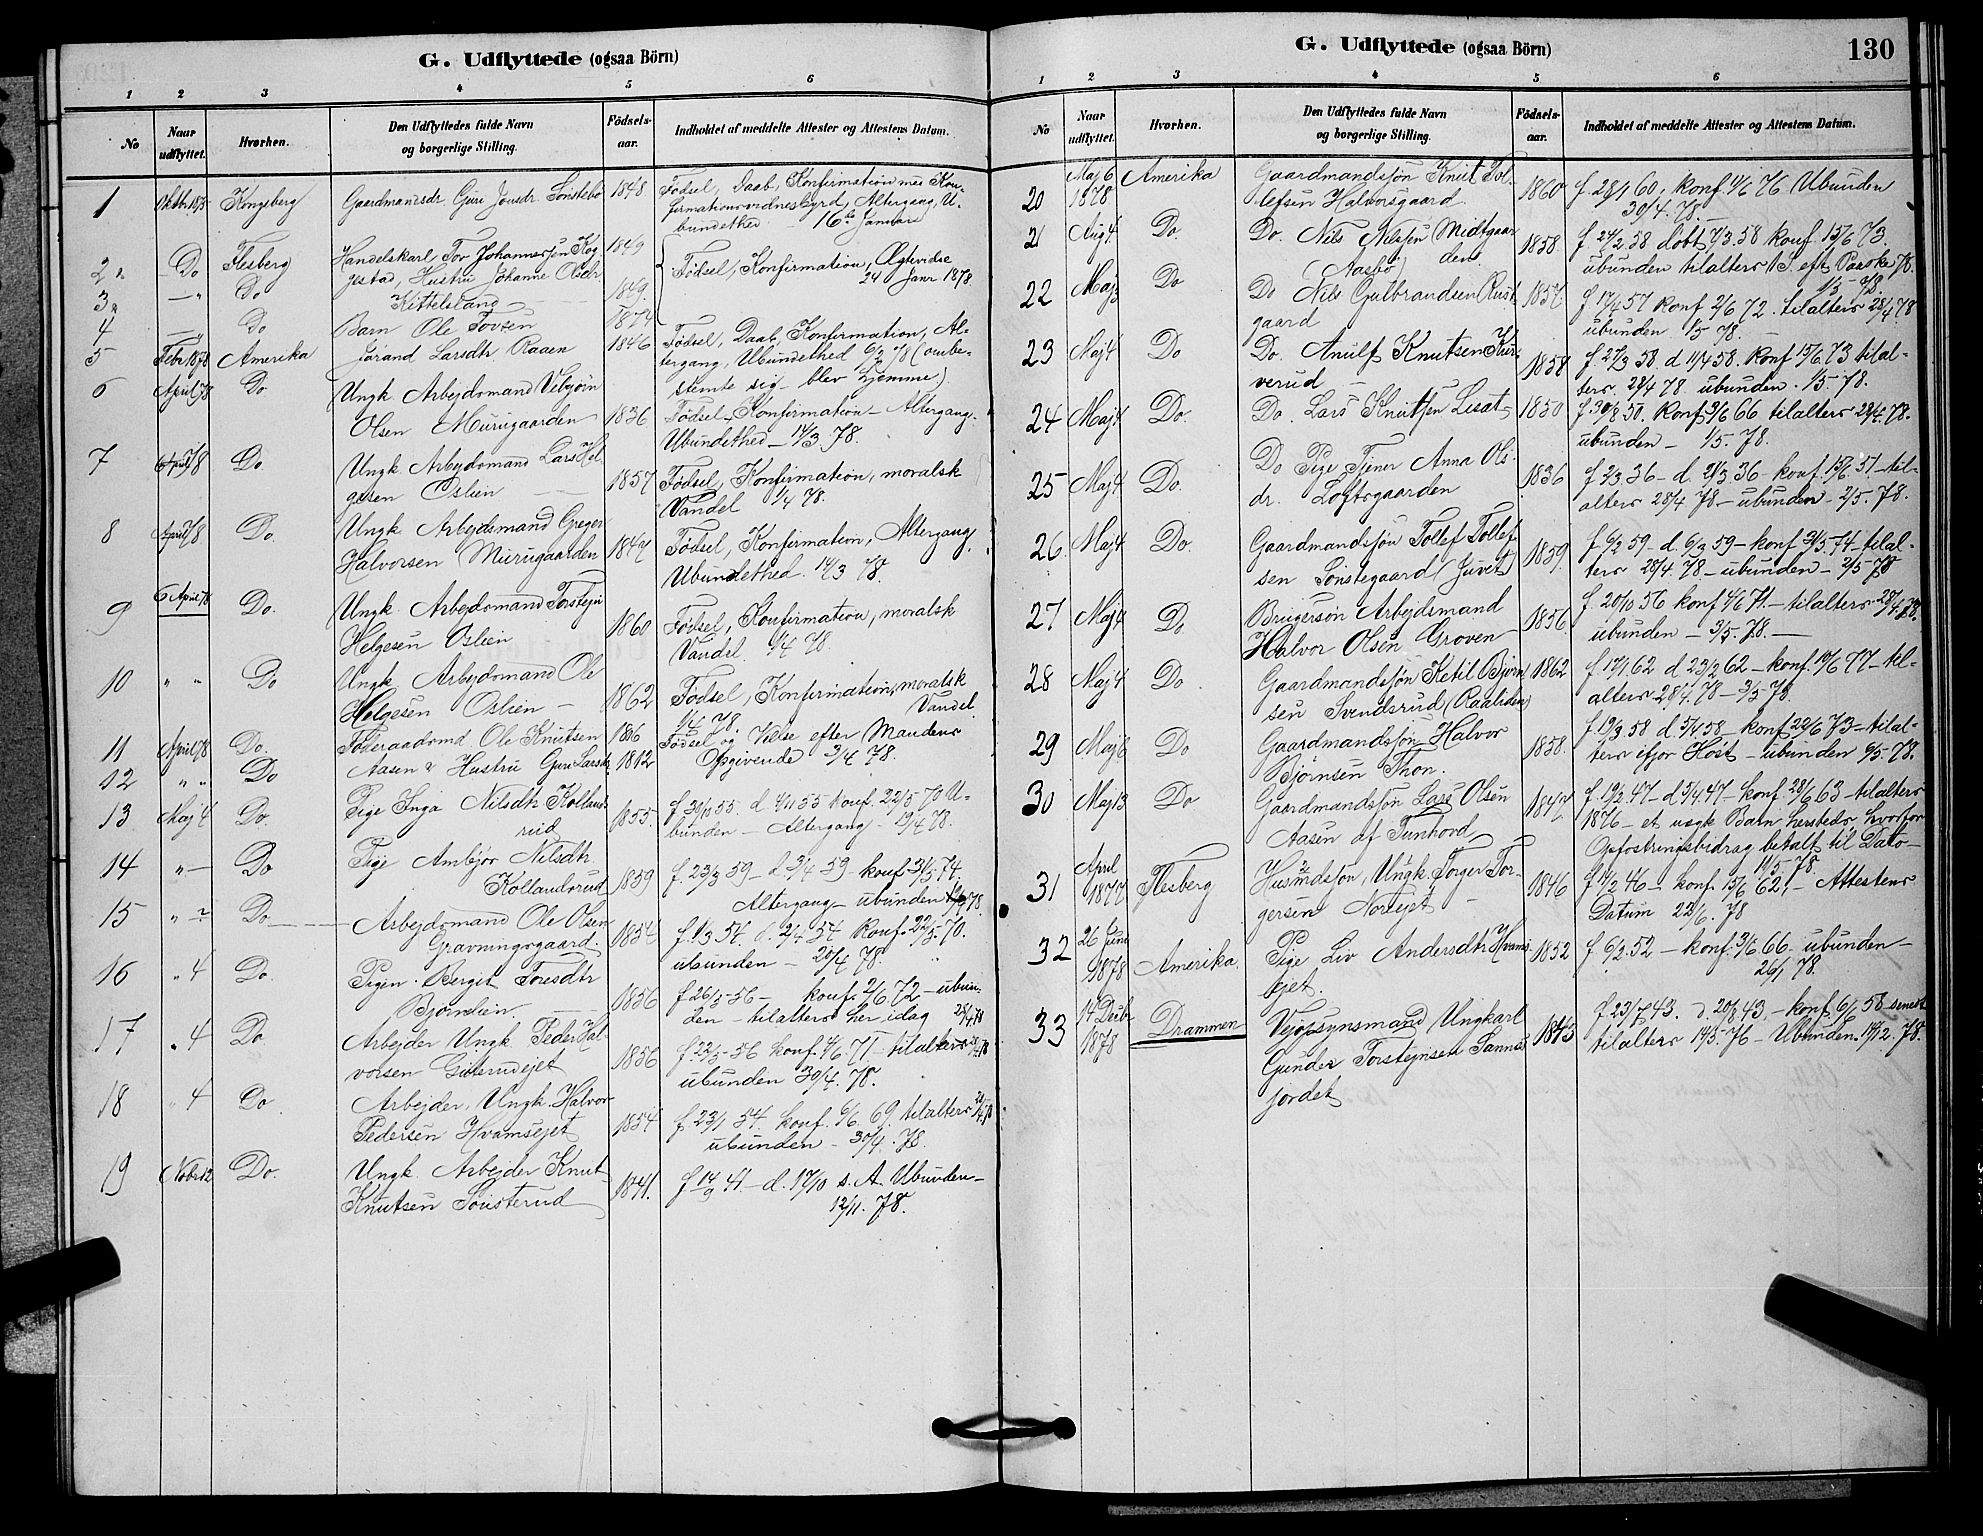 G. Udflyttede (ogsaa Börn)
1 2 3 4 5 6
No
Naar udflyttet.
Hvorhen.
Den Udflyttedes fulde Navn og borgerlige Stilling.
Födsels-aar.
Indholdet af meddelte Attester og Attestens Datum.
1 Kongsberg Gaardmandsdr. Guri Jonsdr. Sönstebö 1848 Födsel, Daab, Konfirmation
firmationsordnesbyrd, Altergang, U-
bundethed 16de Januar
2 Do Flesberg Handelskarl Tov Johannessen
Hustru Johanne Olsdr 1849 Födsel, Konfirmation, Ægtevidse
3 " Do Kittelsland 1849. 24 Janr 1878
4 " Do Barn Ole Tovsen 1877
5 Febr 1878 Amerika Jörand Larsdtr Raaen 1846 Födsel, Daab, Konfirmation, Al-
tergang, Ubundethed 6/2 78 (ombe-
stemte sig - blev hjemme)
6 April 78 Do Ungk Arbejdsmand Vebjörn
Olsen Murugaarden 1836 Födsel - Konfirmation - Altergang.
Ubundethed - 14/3. 78.
7 6 April 78 Do Ungk. Arbejdsmand Lars Hel
gesen Oslien 1857 Födsel, Konfirmation, moralsk
Vandel 1/4 78.
8 April 78 Do Ungk Arbejdsmand Greger
Halvorsen Murugaarden 1847 Födsel, Konfirmation, Altergang
Ubundethed. 14/3 78.
9 6 April 78 Do. Ungk. Arbejdsmand Torstejn
Helgesen Oslien 1860 Födsel, Konfirmation, moralsk
Vandel 1/4 78.
10 " " Do Ungk Arbejdsmand Ole
Helgesen Oslien - 1862 Födsel, Konfirmation, moralsk
1/4 78. Vandel
11 April 78 Do. Föderaadsmd Ole Knutsen Födsel og Vielse efter Mandens
12 " " Do Aasen & Hustru Guri Larsdr 1812 Opgivende 3/4 78.
13 Maj 4 Do. Pige Inga Nilsdtr Kolland
rud 1855. f. 29/10 55. d 4/11 55 konf. 22/5 70 U-
bunden - Altergang - 19/4 78.
14 " - Do Pige Ambjör Nilsdtr.
Kollandsrud 1859 f. 23/3 59 - d 3/4 59 - konf 31/5 74.
Altergang - ubunden
15 " Do Arbejdsmand Ole Olsen
Gravningsgaard. 1854 f. 1/3 54. d. 2/4 54 Konf. 22/5. 70.
ubunden - 20/4 78.
16 " 4 Do. Pigen Bergit Toresdtr
Björnlien. 1856 f 26/5 - 56 - konf. 2/6 72 - ubun-
den - tilalters her idag 28/4 78
17 " 4 Do. Arbejder Ungk Peder Hal
vorsen 1856 f 23/5 - 56 konf. 4/6 71 - tilalters 28/4 78
ubunden 30/4. 78.
18 " 4 Do Arbejder, Ungk. Halvor
Pedersen Hvamsejet 1854 f 23/1 54. konf. 6/6. 69. tilalters 28/4 78
ubunden - 30/4. 78.
19 Nobr 12 Do. Ungk. Arbejder Knut
Knutsen Sönsterud 1841. f 14/9 41 - d. 17/10 s. A. Ubunden -
12/11. 78.
G. Udflyttede (ogsaa Börn)
130
1 2 3 4 5 6
No
Naar udflyttet.
Hvorhen.
Den Udflyttedes fulde Navn og borgerlige Stilling.
Födsels-aar.
Indholdet af meddelte Attester og Attestens Datum.
20 Maj 6 1878 Amerika Gaardmandssön Knut Tol
lefsen Halvorsgaard 1860 f. 28/1 60, konf. 4/6 76 Ubunden
30/4. 78. -
21 Aug 4 Do Do. Nils Nilssen Midtgaar
den (Aasbö) 1858 f. 24/2. 58 döbt 7/3. 58 konf. 15/6 73.
ubunden tilalters 1 S. eft. Paaske 78.
22 Maj 3 Do Do Nils Gulbrandsen Rust
gaard 1857 f 17/4 57 konf 2/6 72. tilalters 28/4. 78
ubunden 1/5 78.
23 Maj 4 Do Do. Anulf Knutsen Kur-
verud - 1858 f 27/3 58. d 11/4 58. konf 15/6. 73 tilal-
ters 28/4 78 ubunden. 1/5 - 78.
24 Maj 4 Do. Do. Lars Knutsen 1850 f 30/8 50. konf. 3/6 66 tilalters 28/4. 78.
ubunden - 1/5. 78.
25 Maj 4 Do Do Pige Tjener Anna Ols-
dr. Loftsgaarden 1836 f 2/3. 36 - d. 21/3 36 - konf. 15/6. 51 - til-
alters 28/4 78 - ubunden - 2/5. 78.
26. Maj 4 Do Gaardmandssön Tollef Tollef
sen Sönstegaard (Juvet) 1859. f 6/2 59 - d. 6/3 59 - konf 31/5. 74 - tilal-
ters 28/4. 78 - ubunden - 2/5 - 78
27 Maj 4 Do Brugersön Arbejdsmand
Halvor Olsen Groven 1856. f. 20/10 56 konf 4/6 71. - tilalters 28/4 78.
ubunden - 3/5. 78. -
28 Maj 4 Do Gaardmandssön Ketil Björn
sen Svendsrud (Raaliden) 1862 f 17/1 62 d 23/2 62 - konf. 10/6 77 - til-
alters 28/4. 78 - 3/5 78
29 Maj 6 Do Gaardmandssön Halvor
Björnsen Thon. 1858. f 19/3. 58 d. 5/4 58 - konf. 22/6 73 - tilal-
ters ifjor Höst - ubunden 6/5. 78.
30 Maj 13 Do Gaardmandssön Lars Olsen
Aasen af Tunhovd 1847 f 19/2. 47 - d 5/4. 47 - konf. 28/6 63 - tilalters
1876 - et uægte Barn hersteds hvorfor
Opfostringsbidrag betalt til Dato -
11/5 - 78.
31 April 1877 Flesberg Husmdssön, Ungk. Torger Tor-
gersen Norejet - 1846 f 14/2 46 - konf. 15/6 62, - Attestens
Datum 22/6. 78
32 26 Juni 1878 Amerika. Pige Liv Andersdtr Hvams-
ejet. 1852 f 6/2. 52 - konf. 3/6 66. ubunden -
26/1 78.
33 14 Decbr 1878 Drammen Vejopsynsmand Ungkarl
Gunder Torstejnsen Sannes
jordet 1843 f 23/7 43. d. 20/8 43. - konf. 6/6 58 senest
tilalters 14/5. 76 - Ubunden. 14/12. 78.